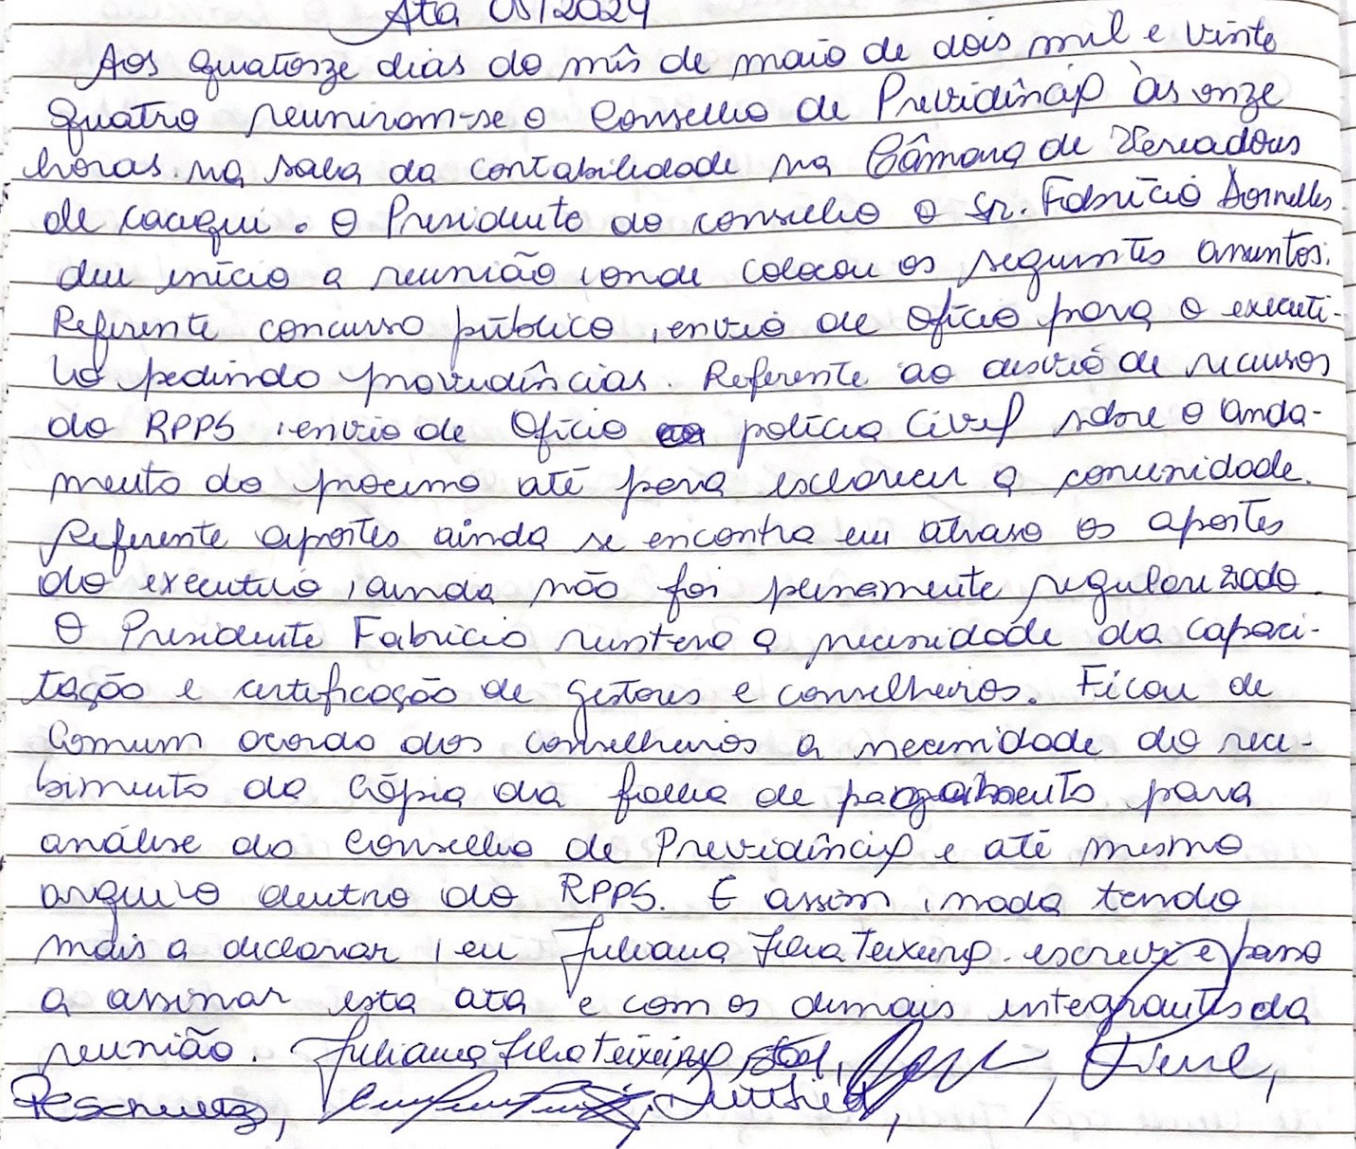 Ata 05/2024
Aos quatorze dias do mês de maio de dois mil e vinte
quatro reuniram-se o Conselho de Previdência às onze
horas na sala da contabilidade na Câmara de Vereadores
de cacequi. O Presidente do conselho o Sr. Fabrício Dornelles
deu início a reunião, onde colocou os seguintes assuntos:
Referente concurso público, envio de ofício para o executi-
vo pedindo providências. Referente ao desvio de recursos
do RPPS, envio de Ofício polícia Civil sobre o anda-
mento do processo até para esclarecer a comunidade.
Referente aportes ainda se encontra em atraso os aportes
do executivo, ainda não foi plenamente regularizado.
O Presidente Fabricio a necessidade da capaci-
tação e certificação de gestores e conselheiros. Ficou de
Comum acordo dos conselheiros a necessidade do rece-
bimento da Cópia da folha de pagamento para
análise do Conselho de Previdência e até mesmo
arquivo dentro do RPPS. E assim, nada tendo
mais a declarar, eu Juliana Teixeira escrevi e passo
a assinar esta ata e com os demais integrantes da
reunião. Juliana Teixeira